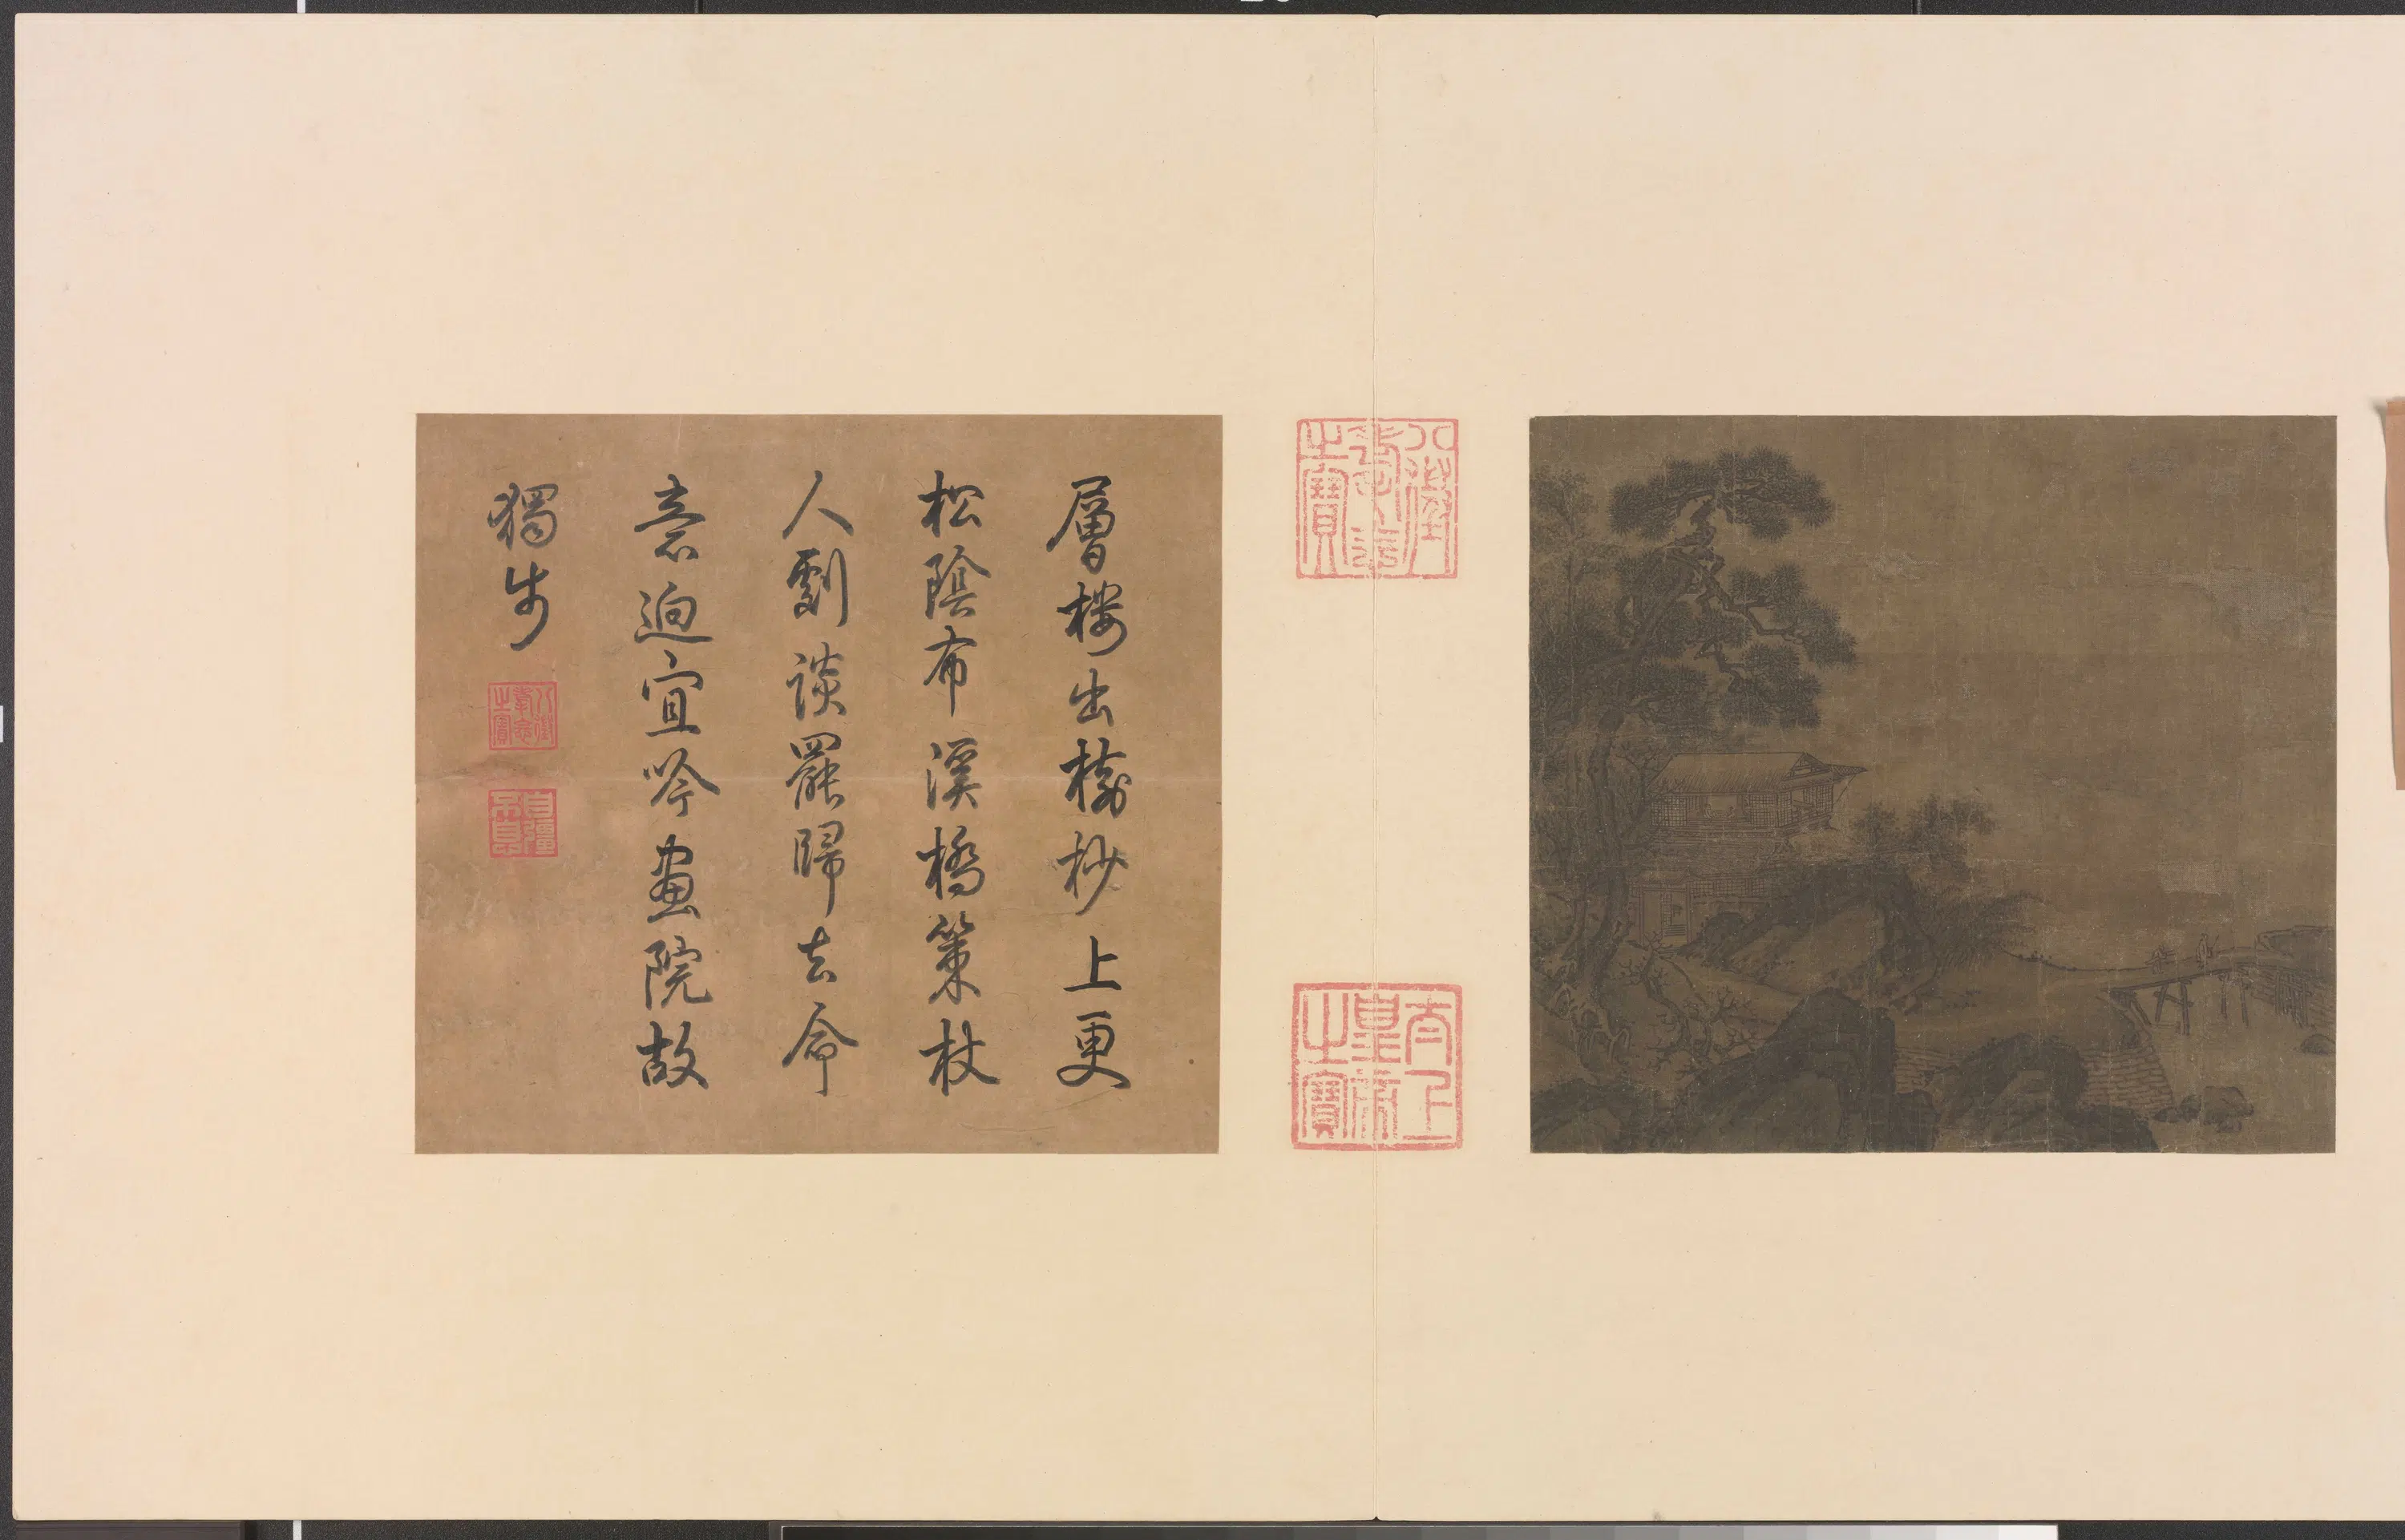 八徵耄念之寶
太上皇帝之寶
層樓出樹杪上更
松陰布溪橋策杖
人劇談罷歸去命
意迥宜吟畫院故
獨步
八徵耄念之寶
自彊不息